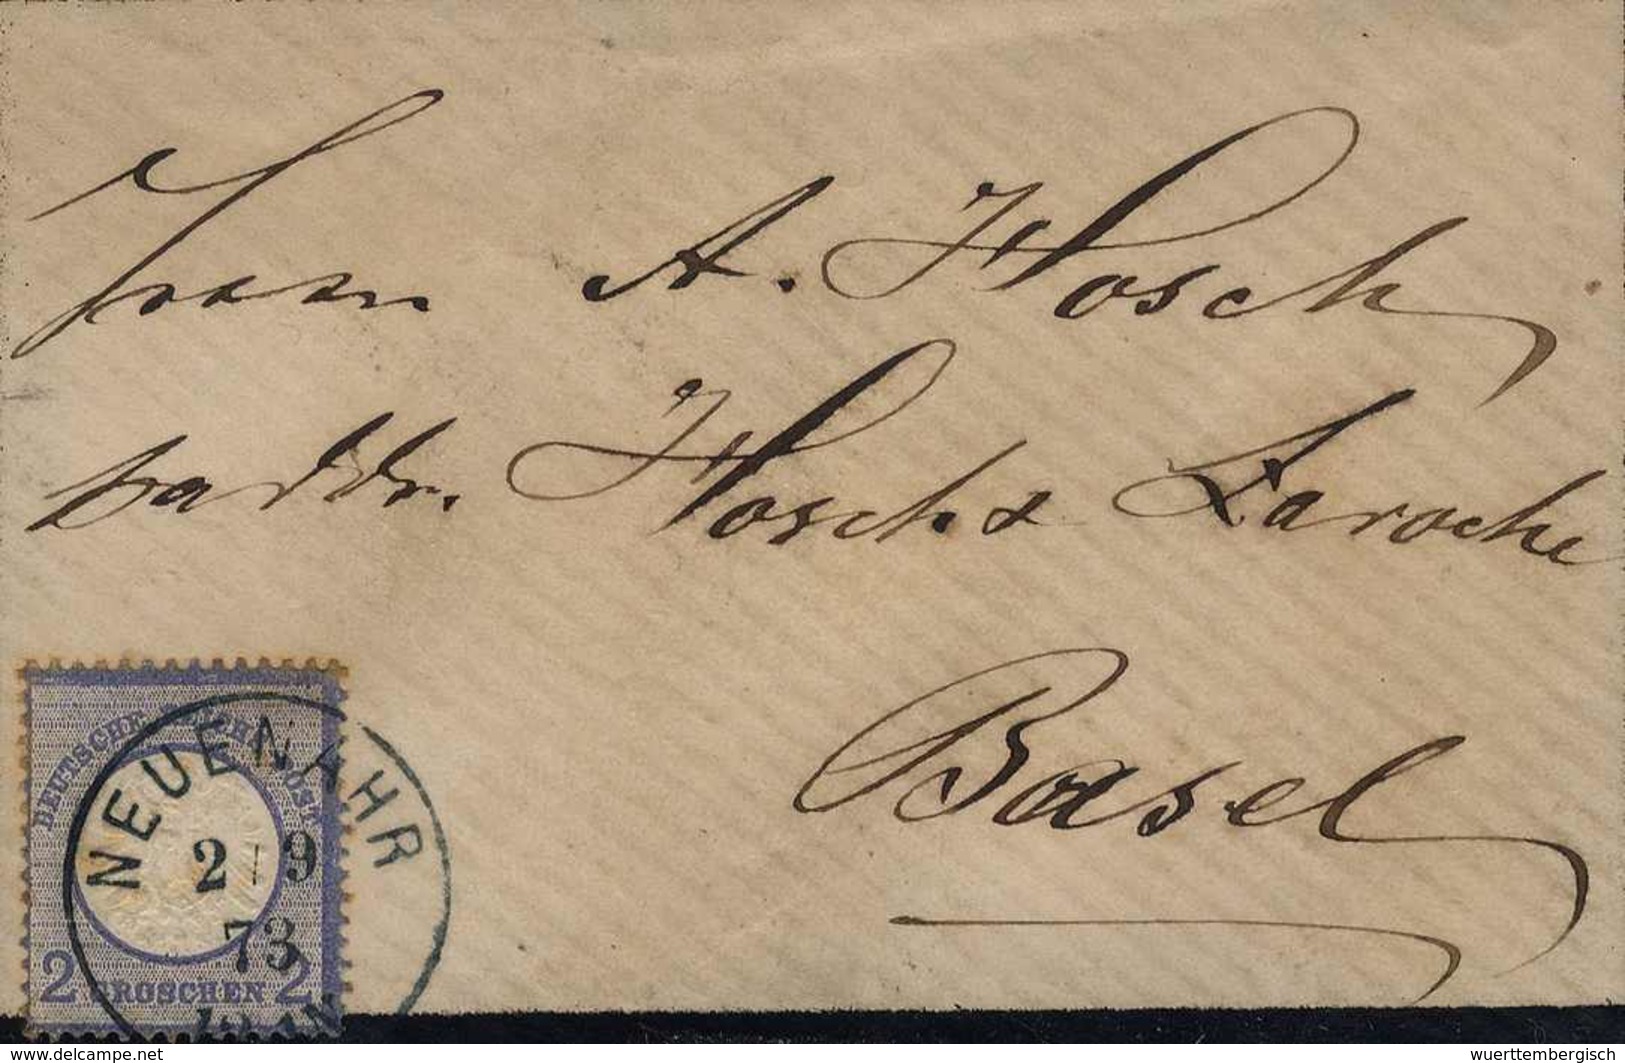 A. Hosch
Hosch & Laroche
Basel
DEUTSCHE REICHS POST
NEUENAHR
2/9
73
2 GROSCHEN 2
www.delcampe.net
wuerttembergisch